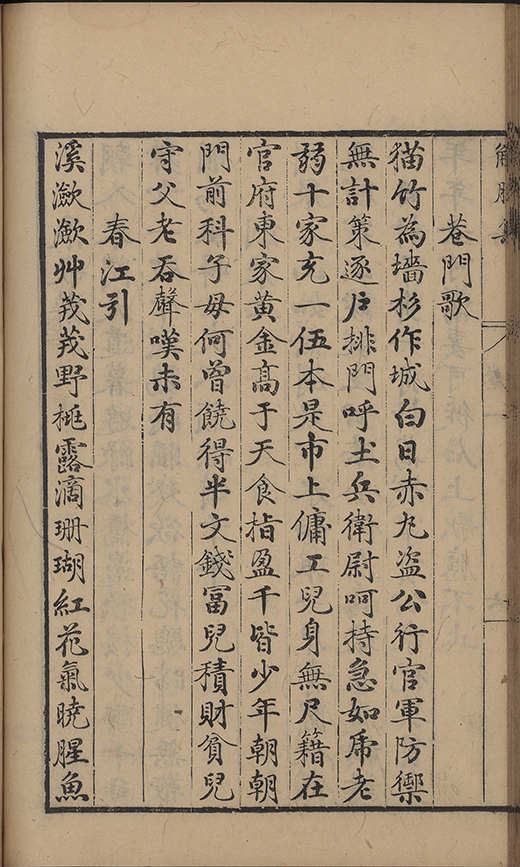 巷門歌
猫竹為墻杉作城白日赤丸盗公行官軍防禦
無計策逐戶排門呼土兵衛尉呵持急如乕老
弱十家充一伍本是市上傭工兒身無尺籍在
官府東家黄金髙于天食指盈千皆少年朝朝
門前科子母何曾饒得半文錢冨兒積財貧兒
守父老吞聲嘆未有
春江引
溪瀲瀲艸茂茂野桃露滴珊瑚紅花氣曉腥魚